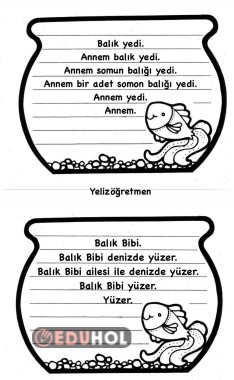 Balık yedi.
Annem balık yedi.
Annem somun balığı yedi.
Annem bir adet somon balığı yedi.
Annem yedi.
Annem.
Yelizöğretmen
Balık Bibi.
Balık Bibi denizde yüzer.
Balık Bibi ailesi ile denizde yüzer.
Balık Bibi yüzer.
Yüzer.
EDUHOL